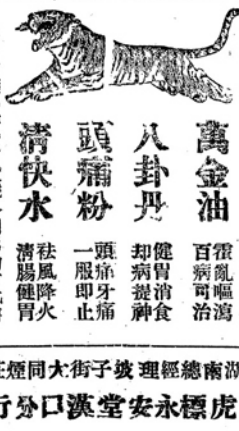 萬金油
霍亂嘔瀉
百病可治
八卦丹
健胃消食
却病提神
頭痛粉
頭痛牙痛
一服即止
清快水
祛風降火
清腸健胃
湖南總經理坡子街大同煙
虎標永安堂漢口分行